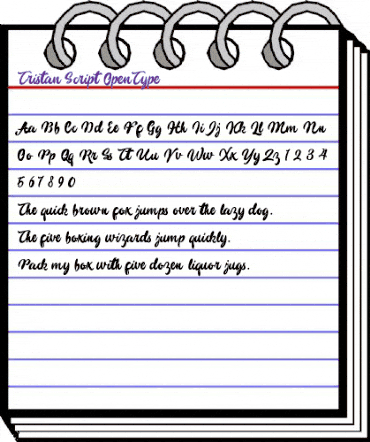 Tristan Script OpenType
Aa Bb Cc Dd Ee Ff Gg Hh Ii Jj Kk Ll Mm Nn
Oo Pp Qq Rr Ss Tt Uu Vv Ww Xx Yy Zz 1 2 3 4
5 6 7 8 9 0
The quick brown fox jumps over the lazy dog.
The five boxing wizards jump quickly.
Pack my box with five dozen liquor jugs.